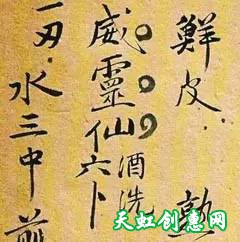 鮮皮
威靈仙六卜酒洗
水三中
天虹创惠网